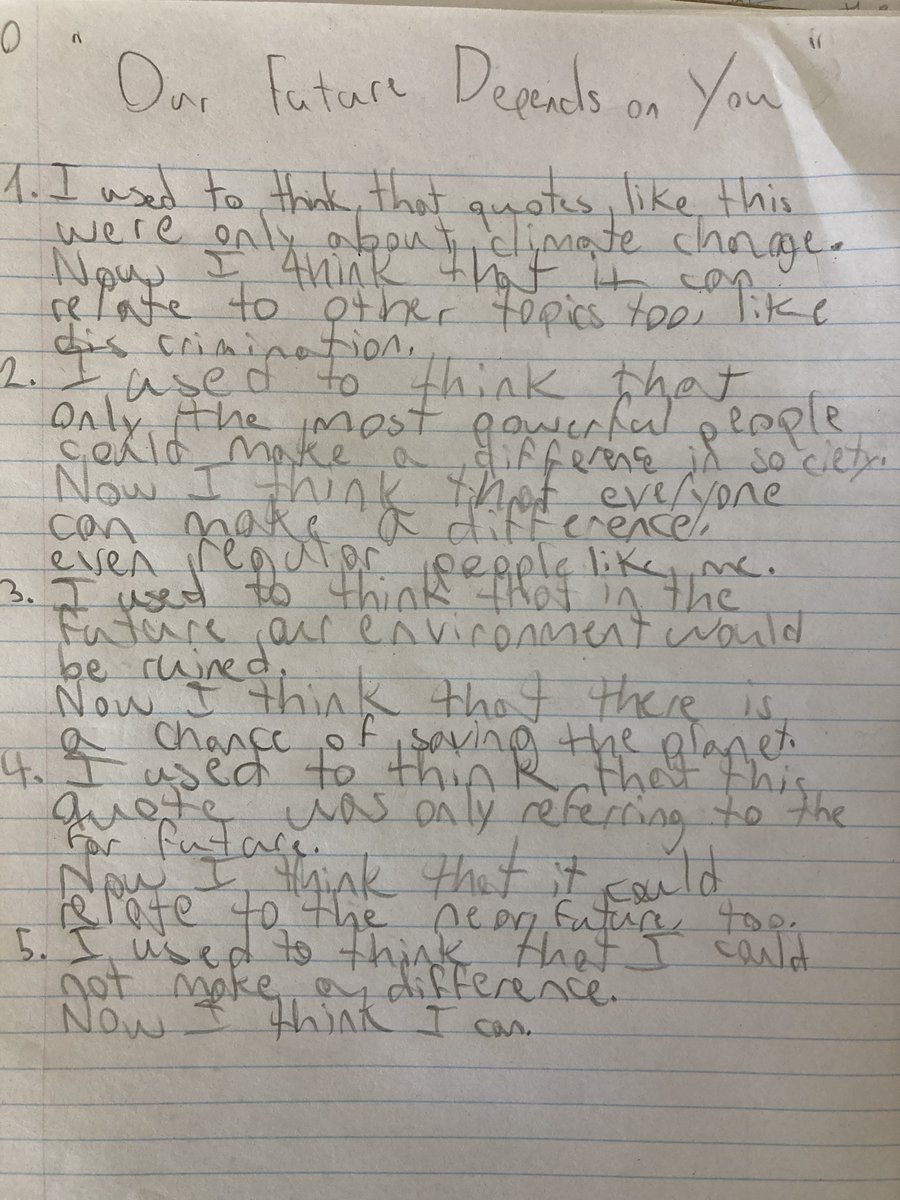 "Our Future Depends on You"
1. I used to think, that quotes, like this
were only about climate change.
Now I think that it can
relate to other topics too, like
discrimination.
2. I used to think that
only the most powerful people
could make a difference in society.
Now I think that everyone
can make a difference,
even regular people like me.
3. I used to think that in the
future our environment would
be ruined.
Now I think that there is
a chance of saving the planet.
4. I used to think that this
quote was only referring to the
far future.
Now I think that it could
relate to the near future, too.
5. I used to think that I could
not make a difference.
Now I think I can.